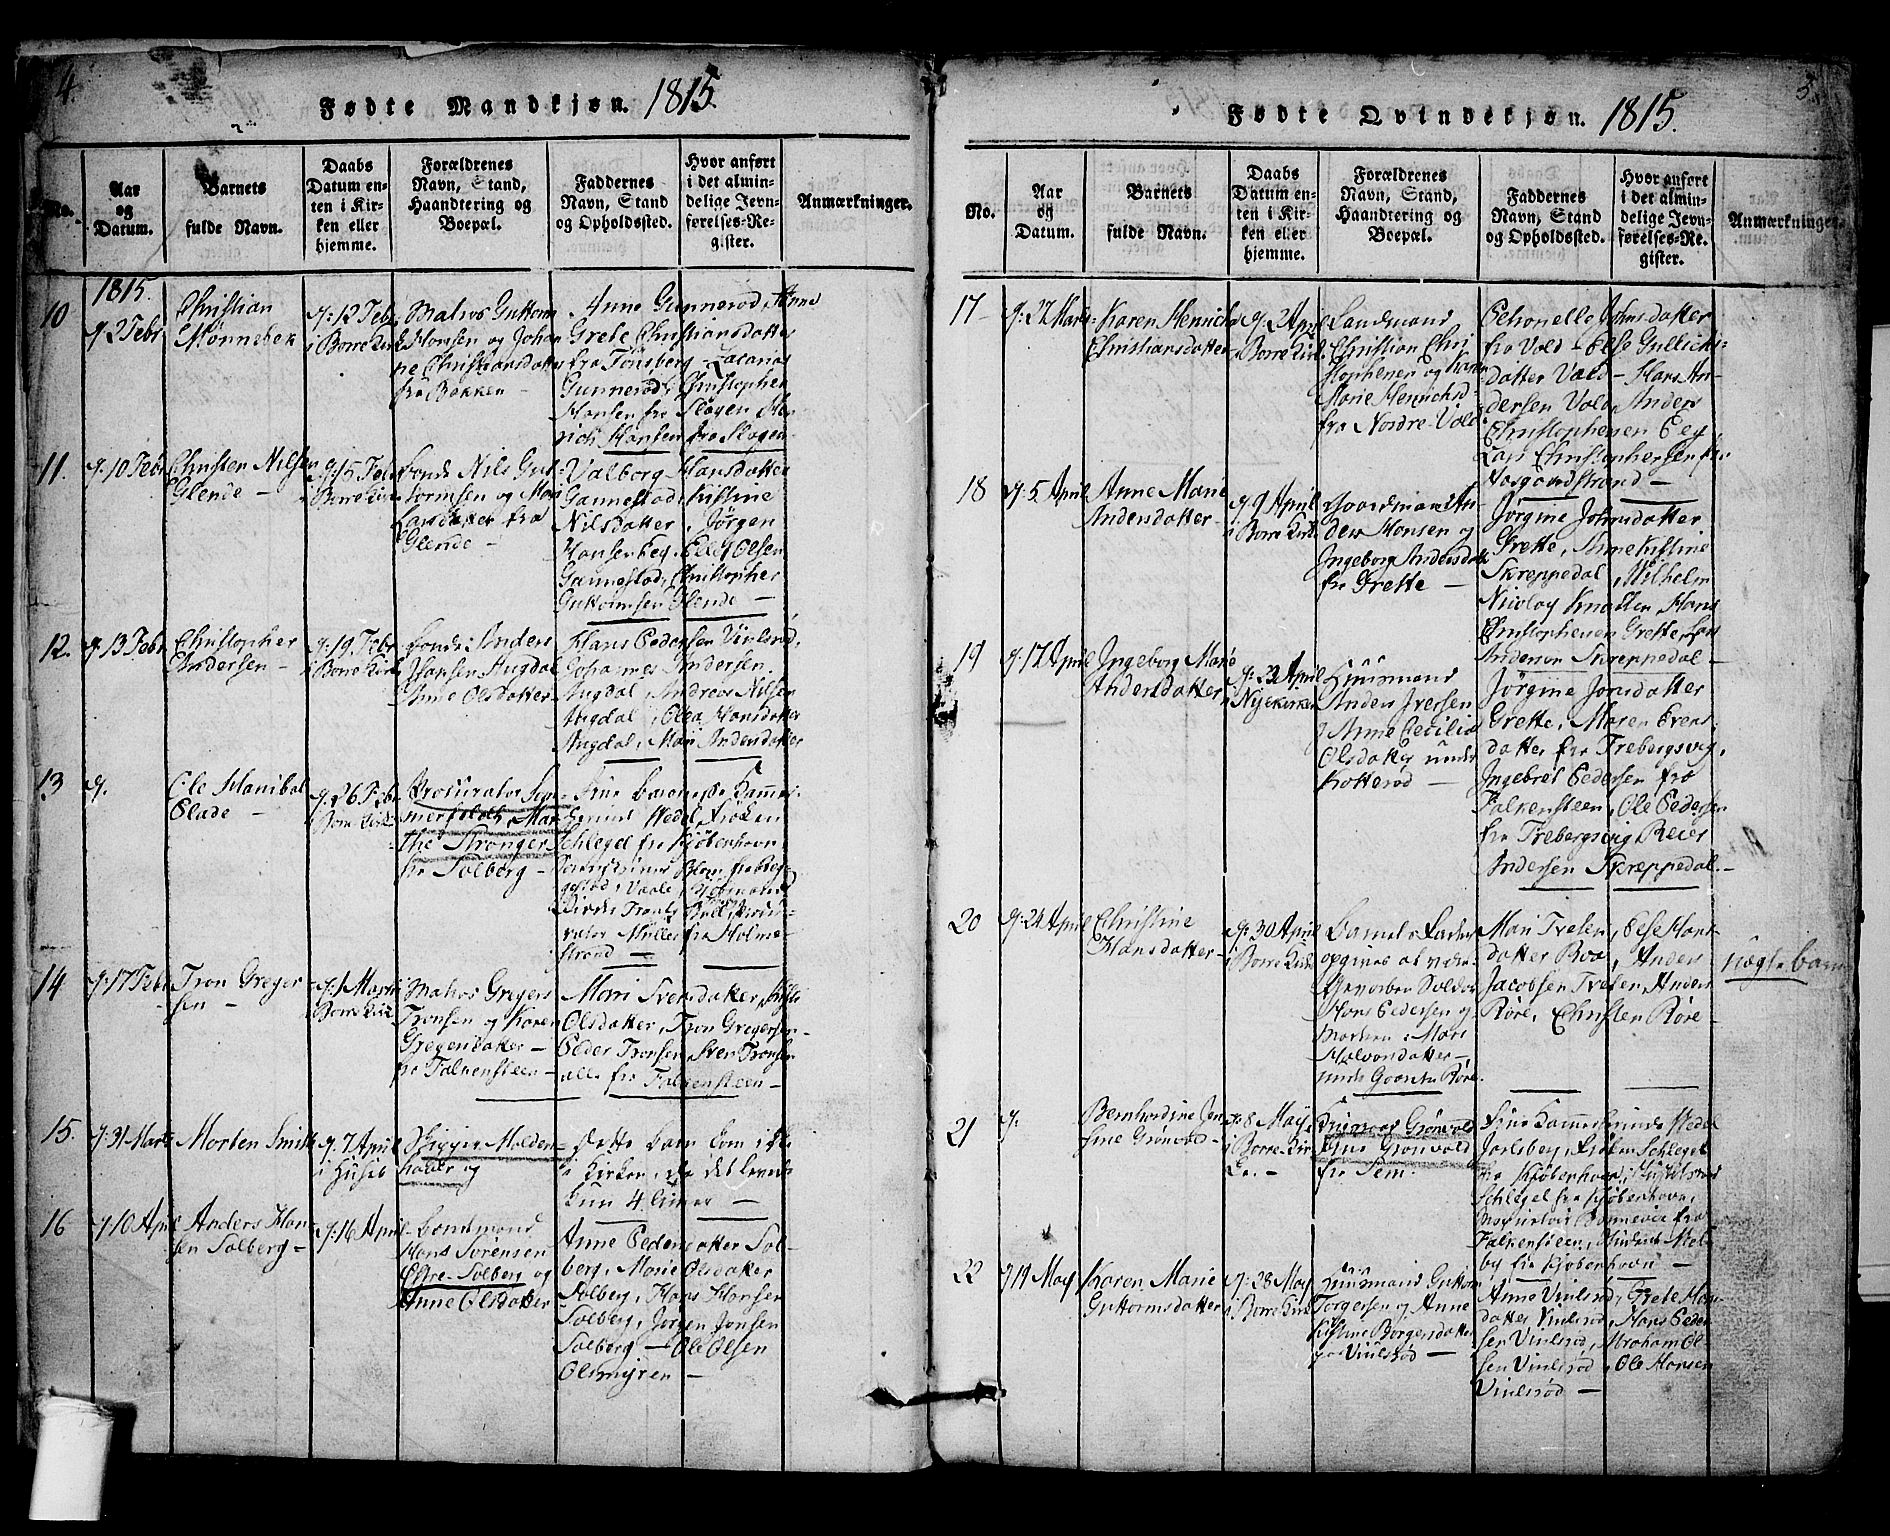 4.
Fødte Mandkjøn. 1815.
No.
Aar
og
Datum.
Barnets
fulde Navn.
Daabs
Datum en-
ten i Kir-
ken eller
hjemme.
Forældrenes
Navn, Stand,
Haandtering og
Boepæl.
Faddernes
Navn, Stand
og Opholdssted.
Hvor anført
i det almin-
delige Jevn-
førelses-Re-
gister.
Anmærkninger.
1815.
10
d: 2 Febr
Christian
Mønnebek
d: 12 Febr.
i Borre Kirk
Matros Guttorm
Thomsen og Johan
ne Christiansdatter
fra Bakken
Anne Gunnerød, Anne
Grete Christiansdatter
fra Tønsberg
Gunnerød, Christopher
Hansen fra Skogen Hen
rich Hansen fra Skogen
11.
d: 10 Febr
Christen Nilsen
Glende
d: 15 Febr
i Borre Kirk
Bonde Nils Gut-
tormsen og Mari
Larsdatter fra
Glende
Valborg Hansdatter
Gannestad, Kistine
Nilsdatter, Jørgen
Hansen Eeg, Elle Olsen
Gannestad, Christopher
Guttormsen Glende
12.
d: 13 Febr
Christopher
Andersen
d: 19 Febr
i Borre Kirk
Bonde Anders
Hansen Augdal
Anne Olsdatter
Hans Pedersen Viulsrød,
Johannes Andersen
Augdal, Andreas Nilsen
Augdal, Olea Hansdatter
Augdal, Mari Andersdatter
13
d.
Ole Hanibal
Elade
d: 26 Febr
i Borre Kirk
Procurator Som-
merfeldt, Mar-
the Stranger
fra Solberg
Frue Baronesse Kammer-
herinde Wedel, Frøken
Schlegel fra Kjøbenhavn
gestad, Vaale
rator Müller fra Holme-
strand
14
d: 17 Febr
Tron Greger
sen
d: 1 Marti
i Borre Kirk
Matros Gregers
Tronsen og Karen
Gregersdatter
fra Falkensteen
Mari Svensdatter,
Olsdatter, Tron Gregersen
Peder Tronsen, Sven Tronsen
alle fra Falkensteen
15.
d: 31 Marti
Morten Smith
d. 7 April
i Huset
Skipper Molden-
hauer og
Dette barn kom ikke
i Kirken, da det levede
kun 4 timer
16
d. 10 April
Anders Han
sen Solberg
d: 16 April
Bondemand
Hans Sørensen
Østre Solberg og
Anne Olsdatter
Anne Pedersdatter Sol-
berg, Marie Olsdatter
Solberg, Hans Hansen
Solberg, Jørgen Jonsen
Solberg — Ole Olsen
Olsmyren
5.
Fødte Qvindekjøn. 1815.
No.
Aar
og
Datum.
Barnets
fulde Navn.
Daabs
Datum en-
ten i Kir-
ken eller
hjemme.
Forældrenes
Navn, Stand,
Haandtering og
Boepæl.
Faddernes
Navn, Stand
og Opholdssted.
Hvor anført
i det almin-
delige Jevn-
førelses-Re-
gister.
Anmærkninger.
17
d: 27 Marti
Karen Henricha
Christiansdatter
d: 2 April
i Borre Kirk.
Landmand
Christian Chri
stophersen og Karen
Marie Henrichsd:
fra Nordre Vold
Petronelle Johnsdatter
fra Vold — Else Gullichs-
datter Vold — Hans An-
dersen Vold, Anders
Christophersen Eeg
Lars Christophersen fra
Aasgaardstrand
18
d: 5 April
Anne Marie
Andersdatter
d: 9 April
i Borre Kirk
Gaardmand An
ders Hansen og
Ingeborg Andersdatt
fra Grette
Jørgine Johnsdatter
Grette, Anne Kistine
Skreppedal, Wilhelm
Nicolay Knatten Hans
Christophersen Grette, Lars
Andersen Skreppedal
19
d: 17 April
Ingeborg Marie
Andersdatter
d: 23 April
Nyekirken
Huusmand
Anders Iversen
Anne Cecilia
Olsdatter under
Rotterød
Jørgine Jonsdatter
Grette, Maren Evens-
datter fra Trebergsvig,
Ingebret Pedersen fra
Falkensteen, Ole Pedersen
fra Trebergsvig Reier
Andersen Skreppedal.
20
d: 24 April
Christine
Hansdatter
d: 30 April
i Borre Kirk
Barnets Fader
opgives at være
Gevorben Soldat
Hans Pedersen og
moderen: Mari
Halvorsdatter
under Gaarden Røre.
Mari Tvesen, Else Hans-
datter Roa, Anders
Jacobsen Tvesen, Anders
Røre, Christen Røre
uægte barn
21
d.
Bernhardine Jen
sine Grønvold
d. 8 May
i Borre Kir
ke.
Grønvold
Grønvold
fra Sem
Frue Kammerherinde Wedel
Jarlsberg, Frøken Schlegel
fra Kjøbenhavn,
Schlegel fra Kjøbenhavn,
Bonnevie fra
Falkensteen, Student Mol-
by fra Kjøbenhavn
22
d 19 May
Karen Marie
Guttormsdatter
d: 28 May
i Borre Kirk
Huusmand Guttorm
Torgersen og Anne
Kistine Borgersdatter
fra Viulsrød
Anne Viulsrød, Grete Hans
datter Viulsrød, Hans Peder
sen Viulsrød, Abraham Ol
sen Viulsrød, Ole Hansen
Viulsrød